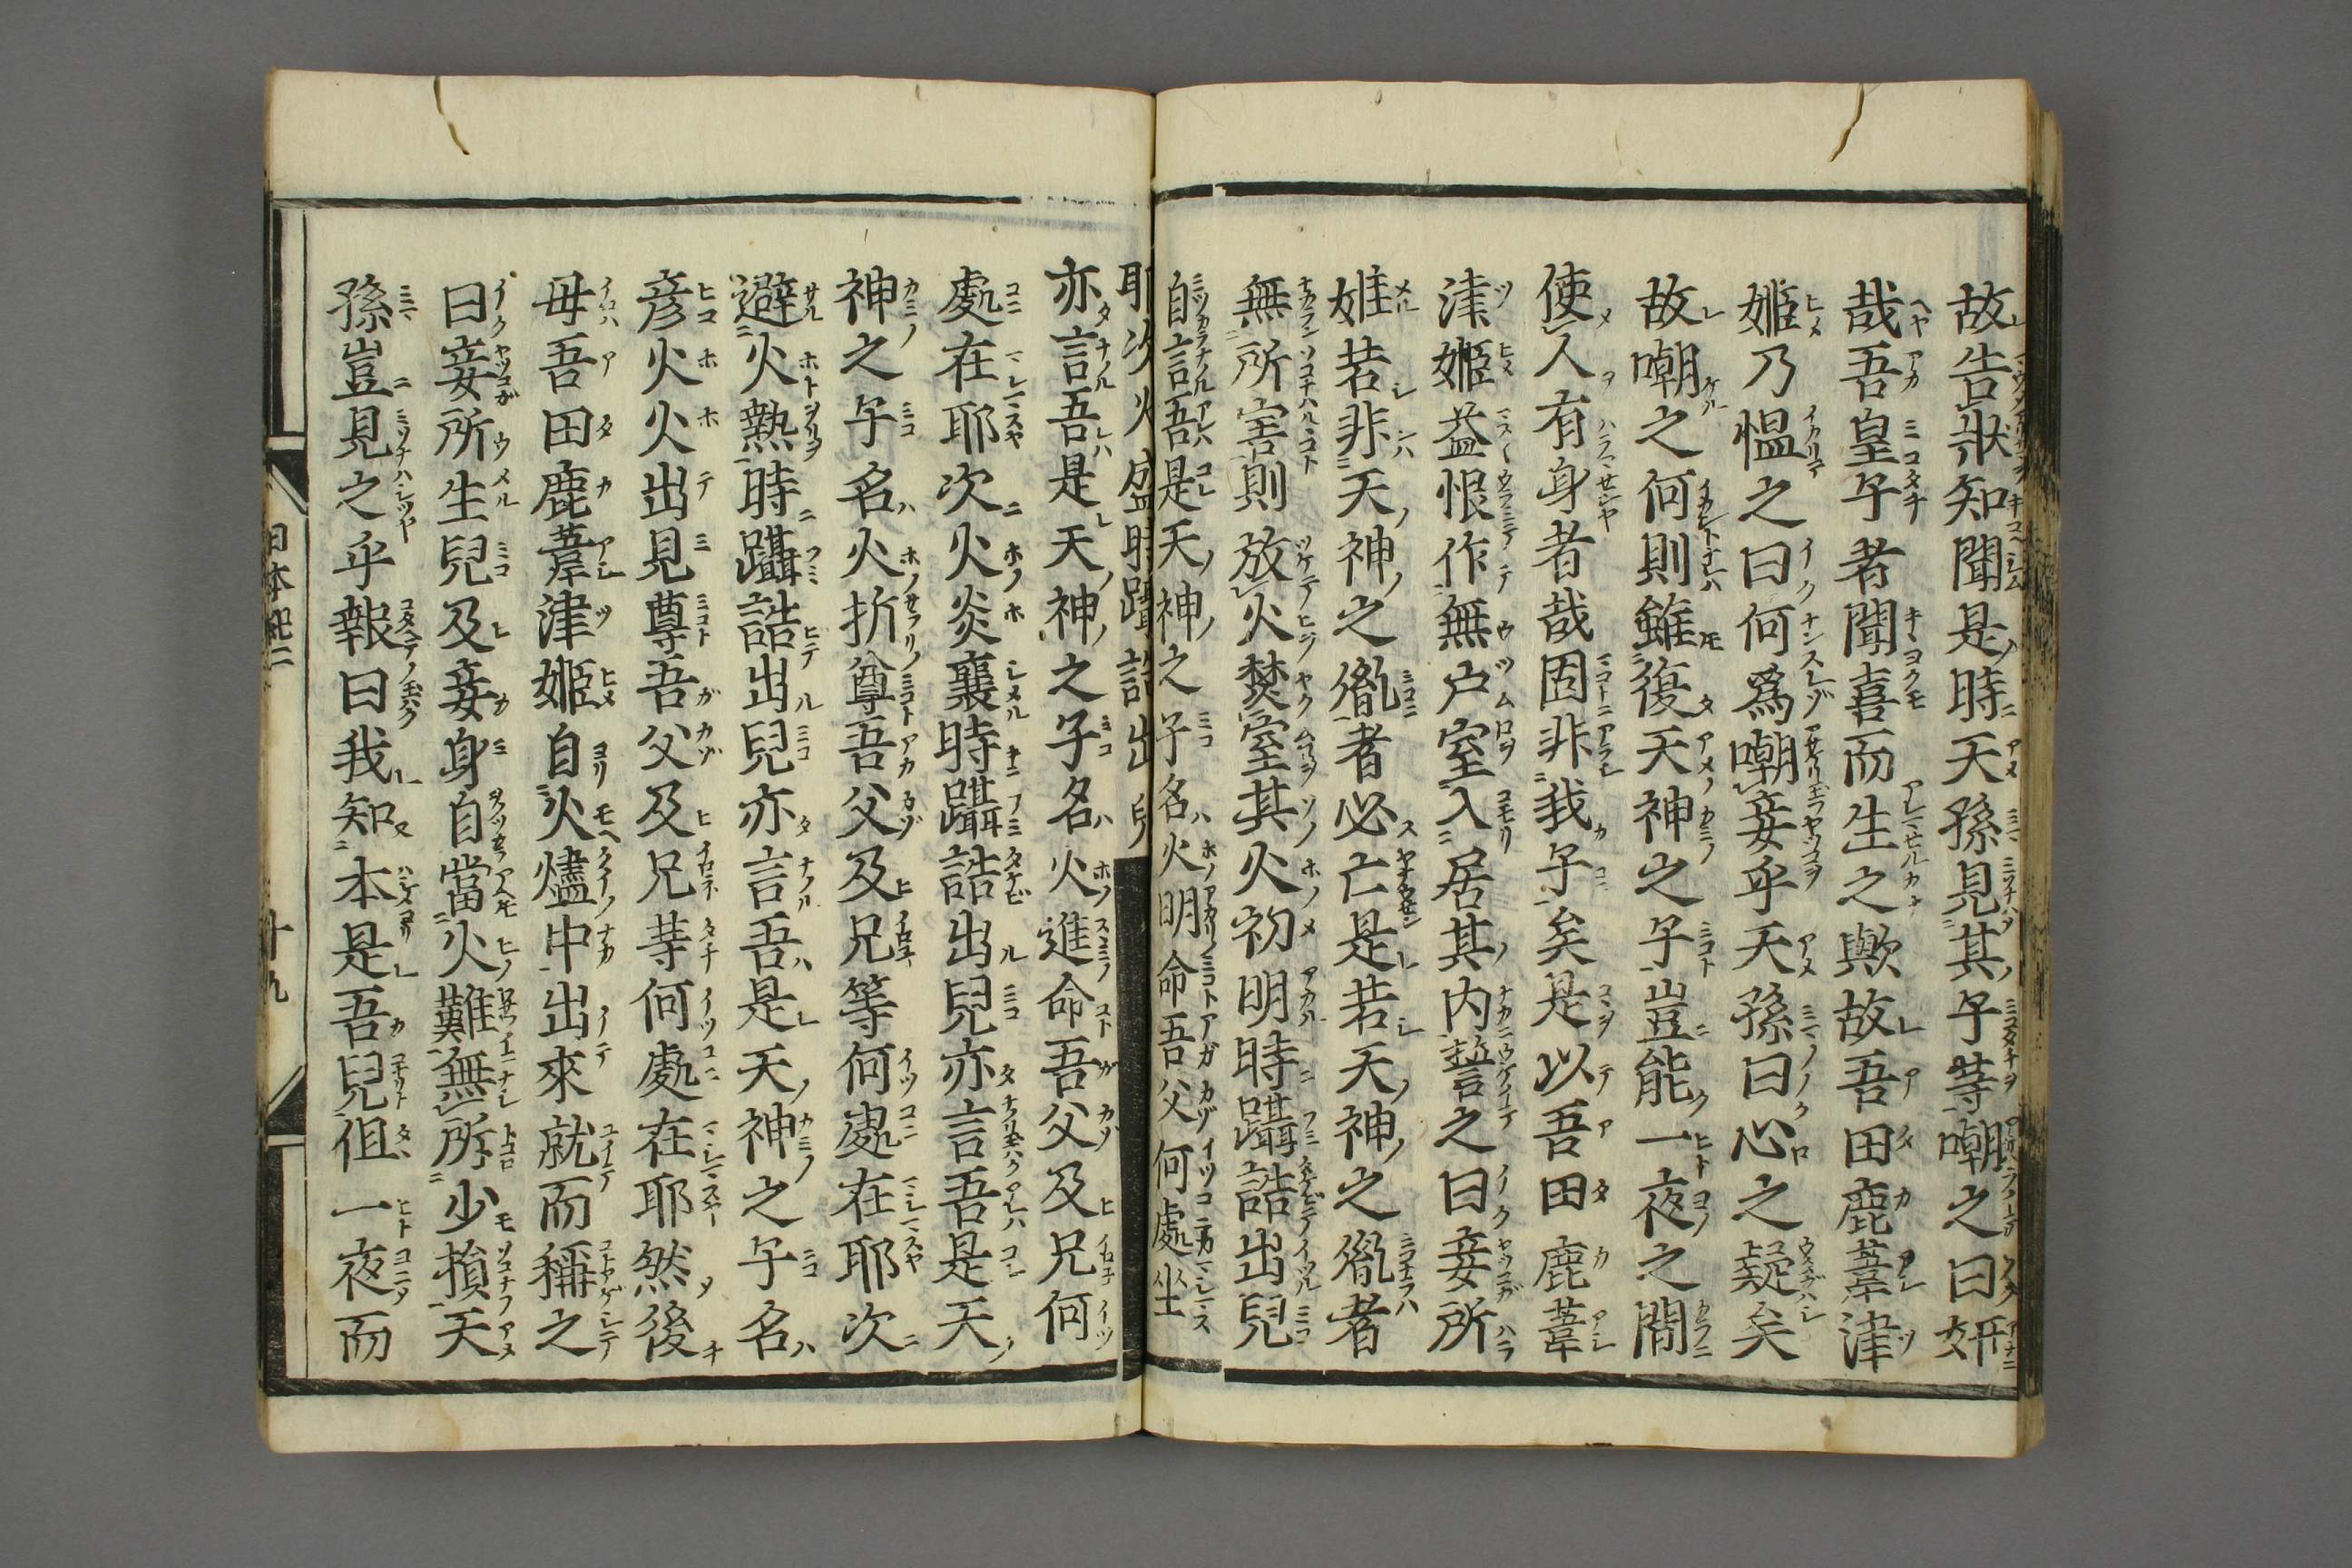 故告狀知聞是時天孫見其子等嘲之曰妍
哉吾皇子者聞喜而生之歟故吾田鹿葦津
姬乃慍之曰何爲嘲妾乎天孫曰心之疑矣
故嘲之何則雖復天神之子豈能一夜之間
使人有身者哉固非我子矣是以吾田鹿葦
津姬益恨作無戶室入居其內誓之曰妾所
娠若非天神之胤者必亡是若天神之胤者
無所害則放火焚室其火初明時躡誥出兒
自言吾是天神之子名火明命吾父何處坐
耶次火盛時躡誥出兒
亦言吾是天神之子名火進命吾父及兄何
處在耶次火炎襄時躡誥出兒亦言吾是天
神之子名火折尊吾父及兄等何處在耶次
避火熱時躡誥出兒亦言吾是天神之子名
彥火火出見尊吾父及兄等何處在耶然後
母吾田鹿葦津姬自火燼中出來就而稱之
曰妾所生兒及妾身自當火難無所少損天
孫豈見之乎報曰我知本是吾兒但一夜而
日本紀二
十九